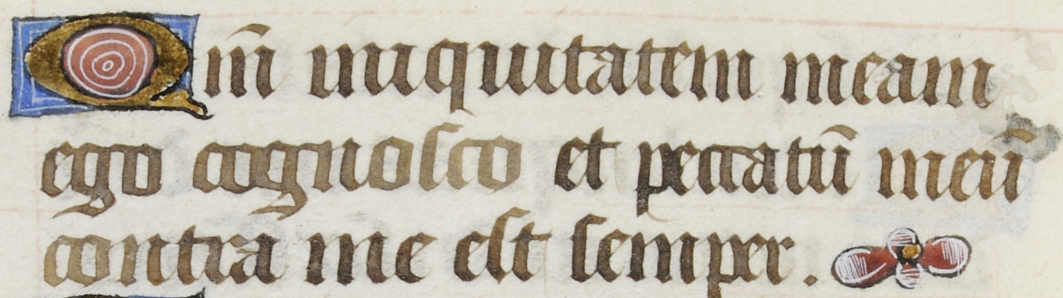 Qm̄ iniquitatem meam
ego cognosco et peccatū meū
contra me est semper.